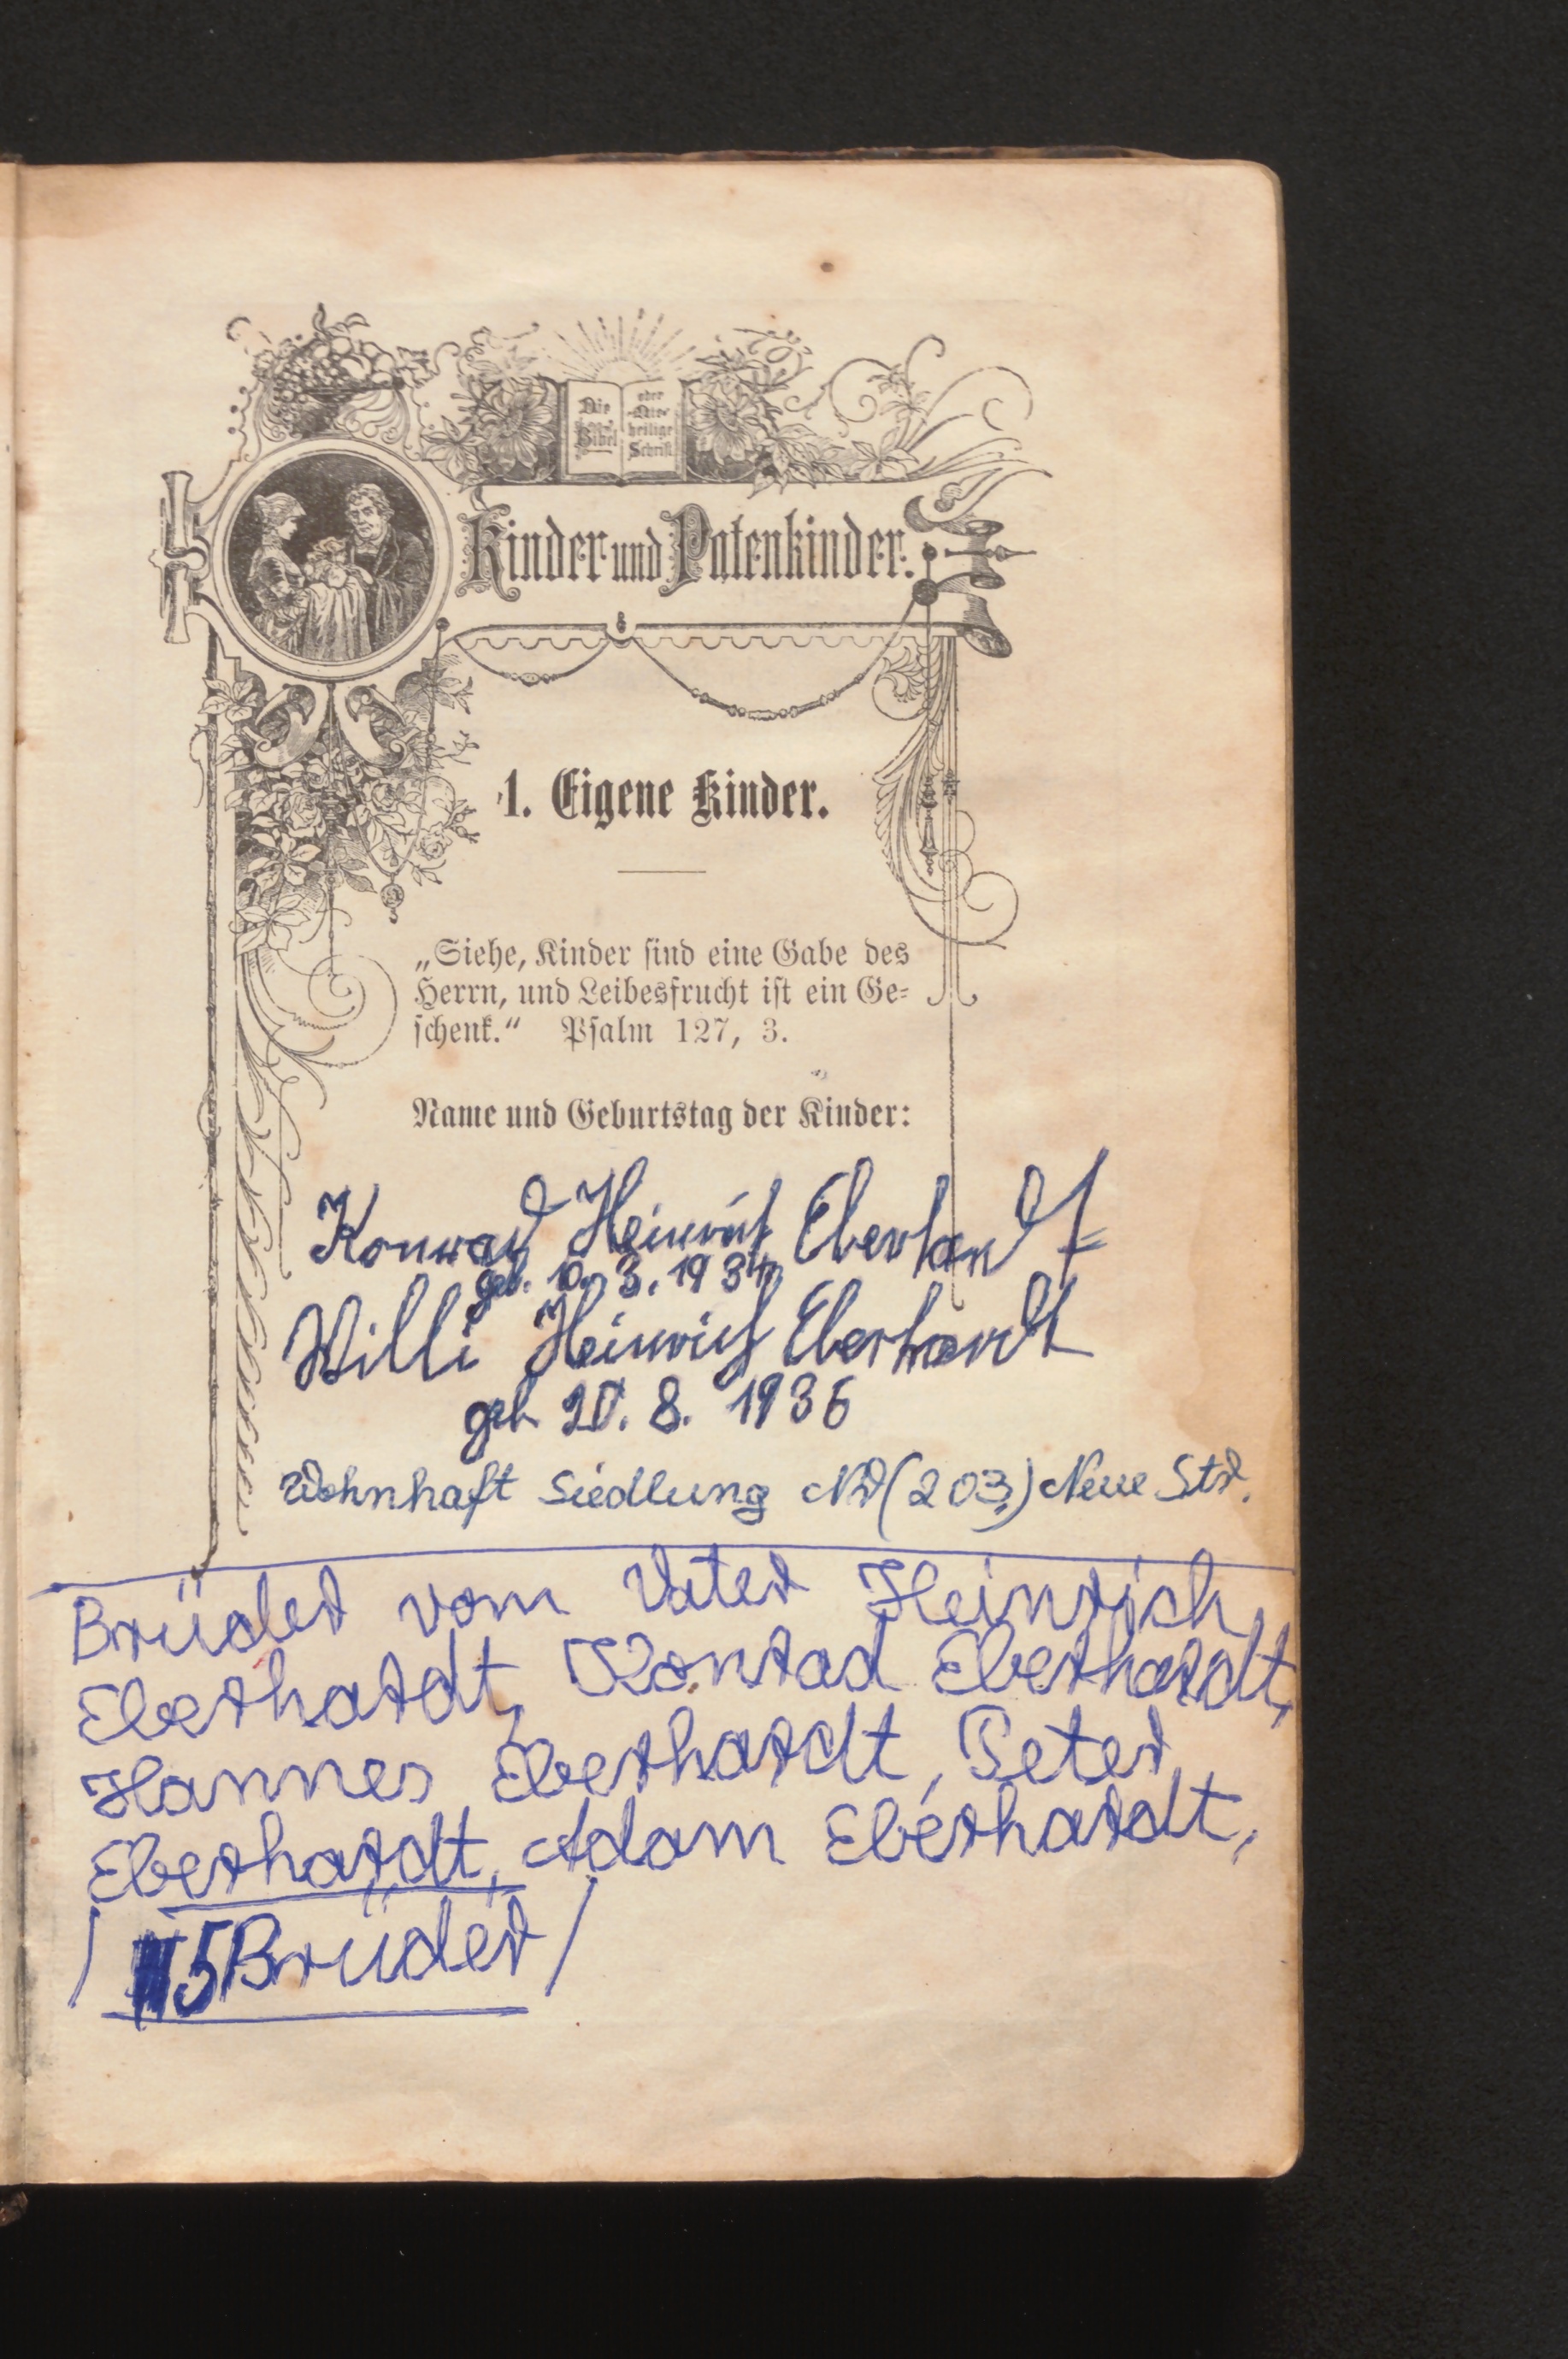 Die Bibel
oder
die
heilige
Schrift
Kinder und Patenkinder.
1. Eigene Kinder.
„Siehe, Kinder sind eine Gabe des
Herrn, und Leibesfrucht ist ein Ge-
schenk.“ Psalm 127, 3.
Name und Geburtstag der Kinder:
Konrad Heinrich Eberhardt
geb. 10. 3. 1934
Willi Heinrich Eberhardt
geb 20. 8. 1936
Wohnhaft Siedlung Nr (203.) Neue Str.
Brüder vom Vater Heinrich
Eberhardt, Konrad Eberhardt,
Hannes Eberhardt, Peter
Eberhardt, Adam Eberhardt,
/ 5 Brüder /